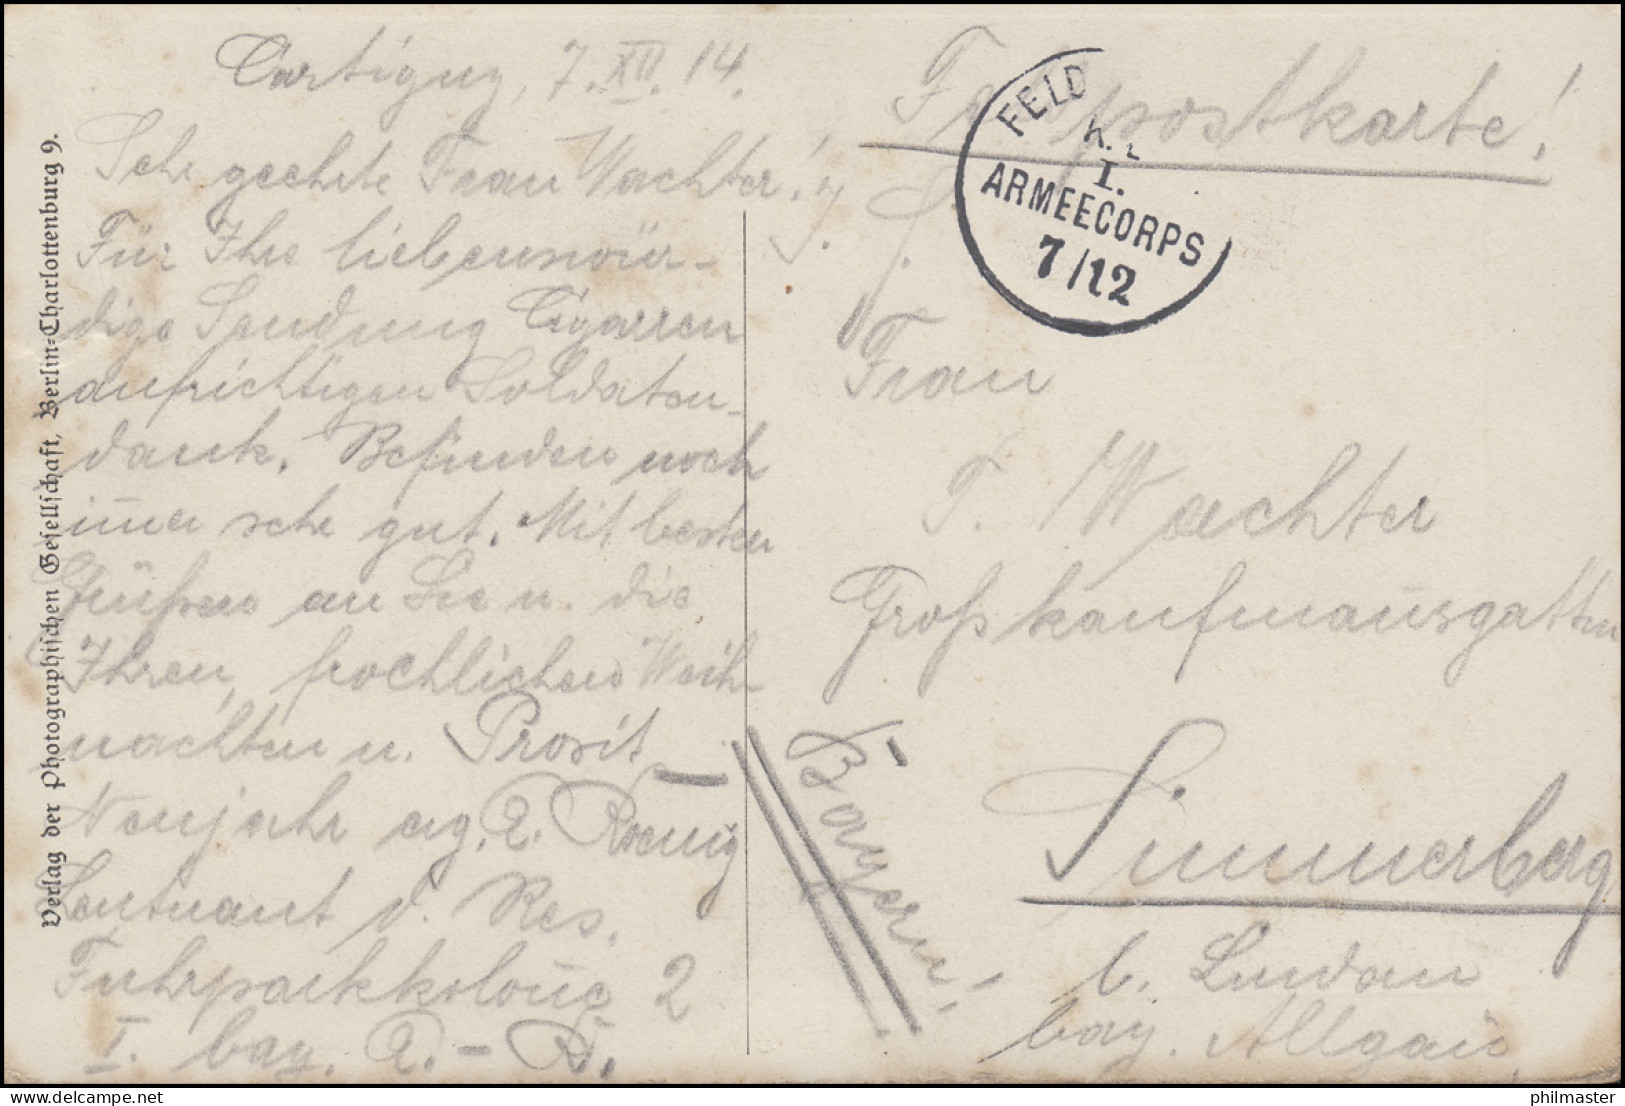 Cartigny, 7. XII. 14.
Sehr geehrte Frau Wachter!
Für Ihre liebenswür-
dige Sendung Cigarren
aufrichtigen Soldaten-
dank. Befinden noch
imer sehr gut. Mit besten
Grüßen an Sie u. die
Ihren, froehlichen Weih-
nachten u. Prosit
Neujahr erg. A. Koenig
Leutnant d. Res.
Fuhrparkkolonne 2
I. bay. A.-K.
Feldpostkarte!
FELD
K.
I.
ARMEECORPS
7/12
Frau
T. Wachter
Großkaufmannsgattin
Simmerberg
b. Lindau
bay. Allgäu
Bayern!
Verlag der Photographischen Gesellschaft, Berlin-Charlottenburg 9.
philmaster